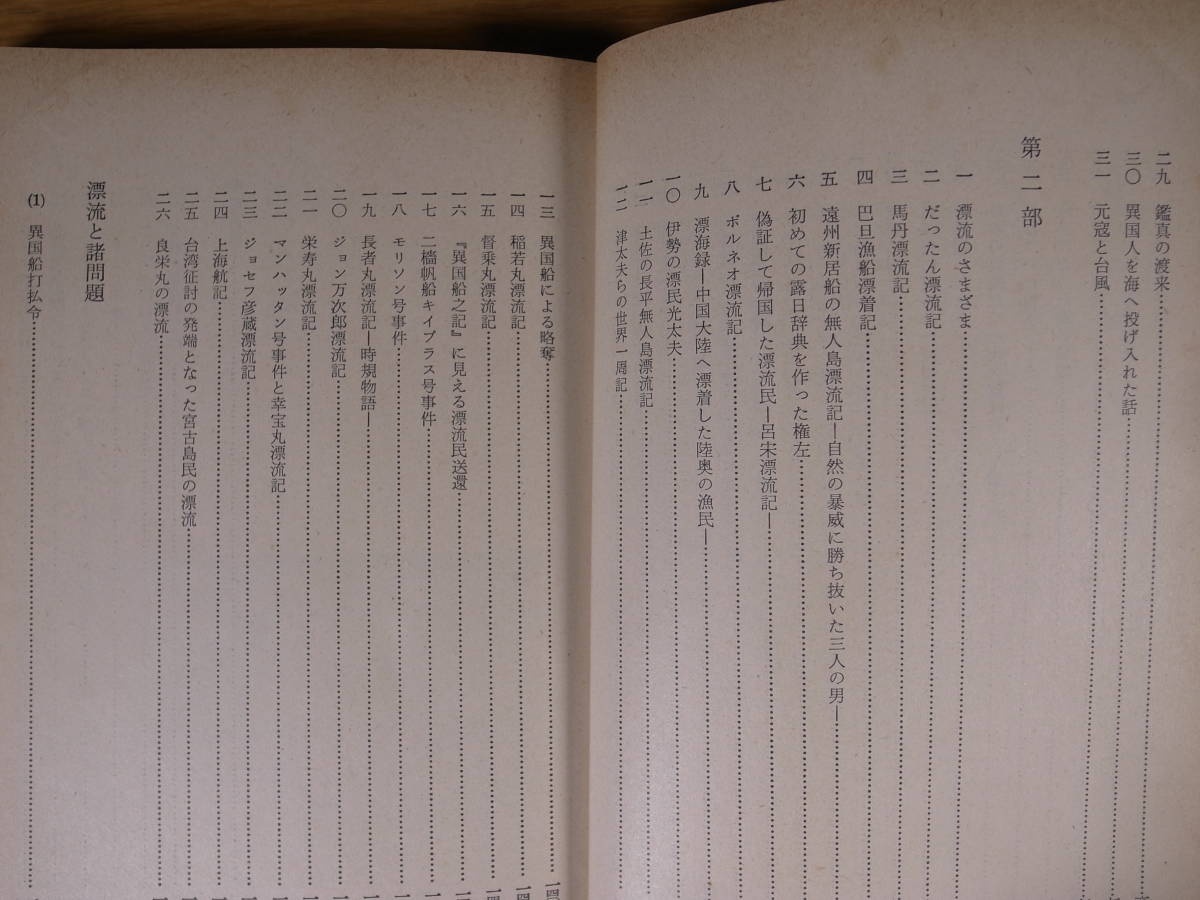 二九 鑑真の渡来
三〇 異国人を海へ投げ入れた話
三一 元寇と台風
第二部
一 漂流のさまざま
二 だったん漂流記
三 馬丹漂流記
四 巴旦漁船漂着記
五 遠州新居船の無人島漂流記―自然の暴威に勝ち抜いた三人の男―
六 初めての露日辞典を作った権左
七 偽証して帰国した漂流民―呂宋漂流記―
八 ボルネオ漂流記
九 漂海録―中国大陸へ漂着した陸奥の漁民―
一〇 伊勢の漂民光太夫
一一 土佐の長平無人島漂流記
一二 津太夫らの世界一周記
一三 異国船による略奪
一四 稲若丸漂流記
一五 督乗丸漂流記
一六 『異国船之記』に見える漂流民送還
一七 二檣帆船キイプラス号事件
一八 モリソン号事件
一九 長者丸漂流記―時規物語―
二〇 ジョン万次郎漂流記
二一 栄寿丸漂流記
二二 マンハッタン号事件と幸宝丸漂流記
二三 ジョセフ彦蔵漂流記
二四 上海航記
二五 台湾征討の発端となった宮古島民の漂流
二六 良栄丸の漂流
漂流と諸問題
(1) 異国船打払令